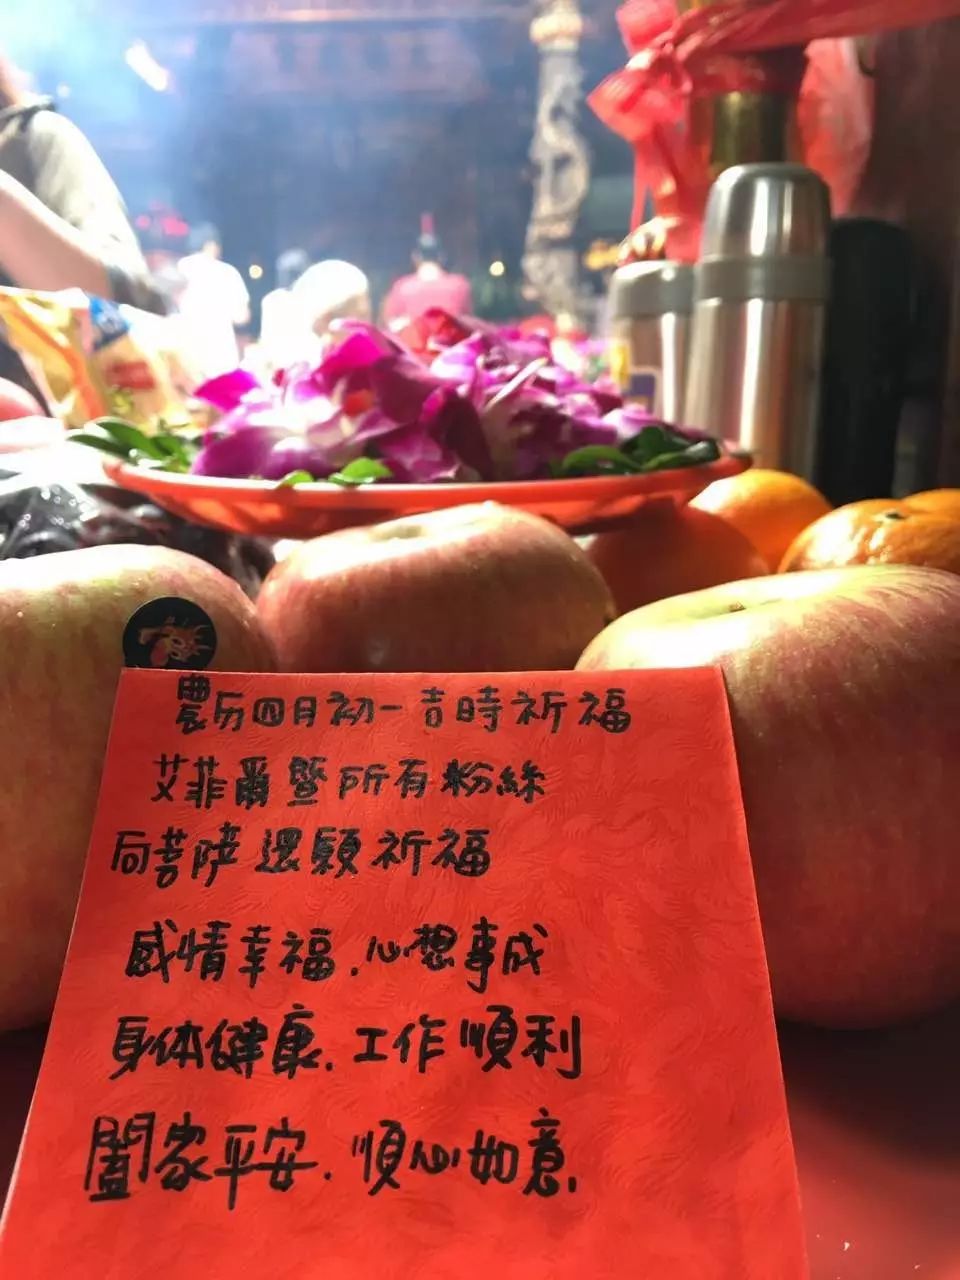 農历四月初一吉時祈福
艾菲爾暨所有粉絲
向菩萨還願祈福
感情幸福.心想事成
身体健康.工作順利
闔家平安.順心如意.